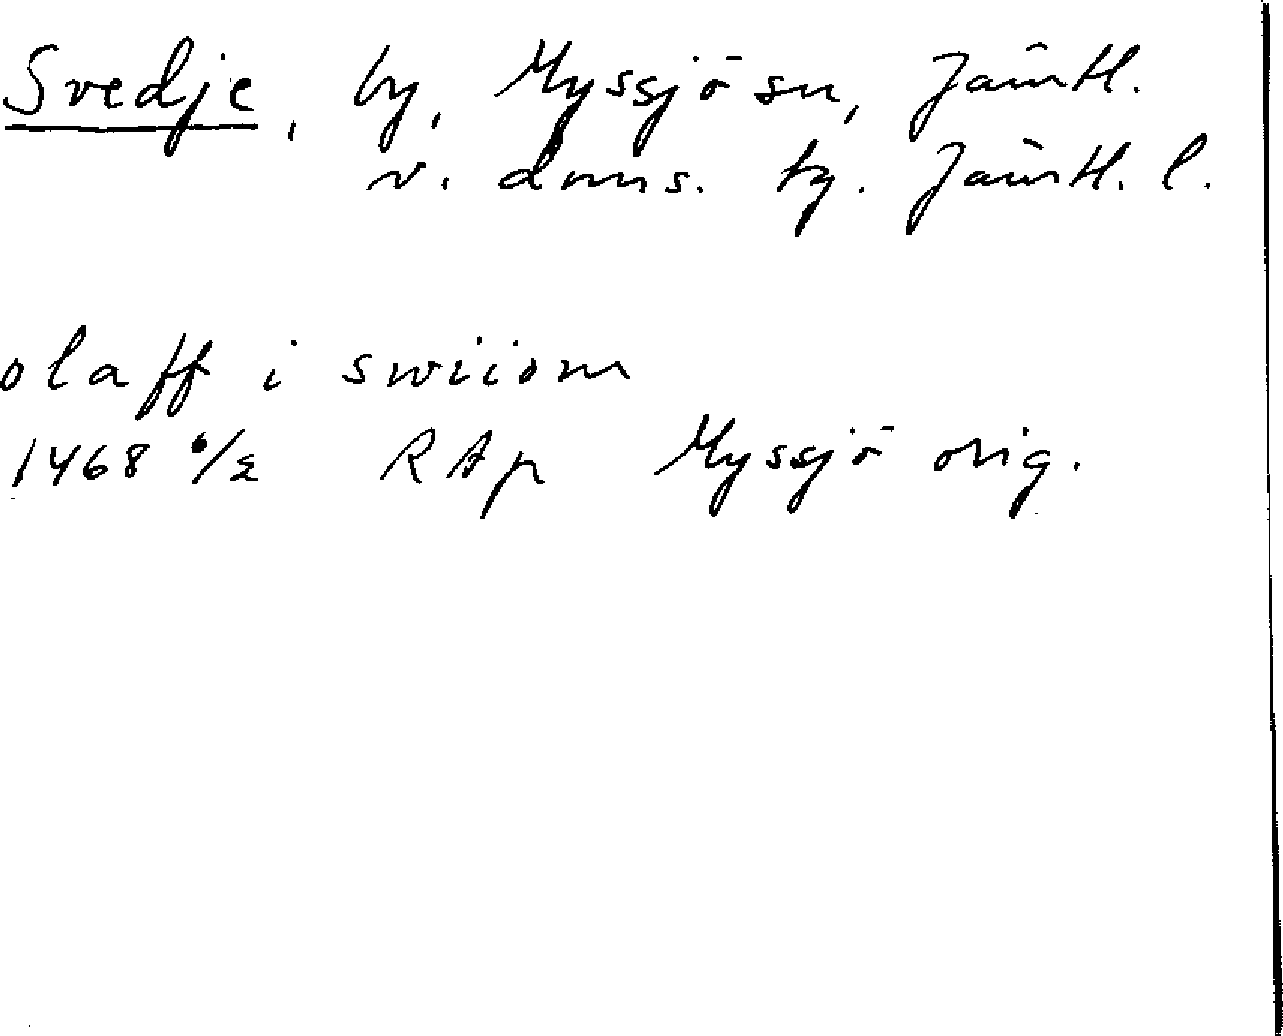 Svedje, by, Myssjö sn, Jämtl.
v. doms. tg. Jämtl. l.
olaff i swiiom
1468 6/2 RAp Myssjö orig.